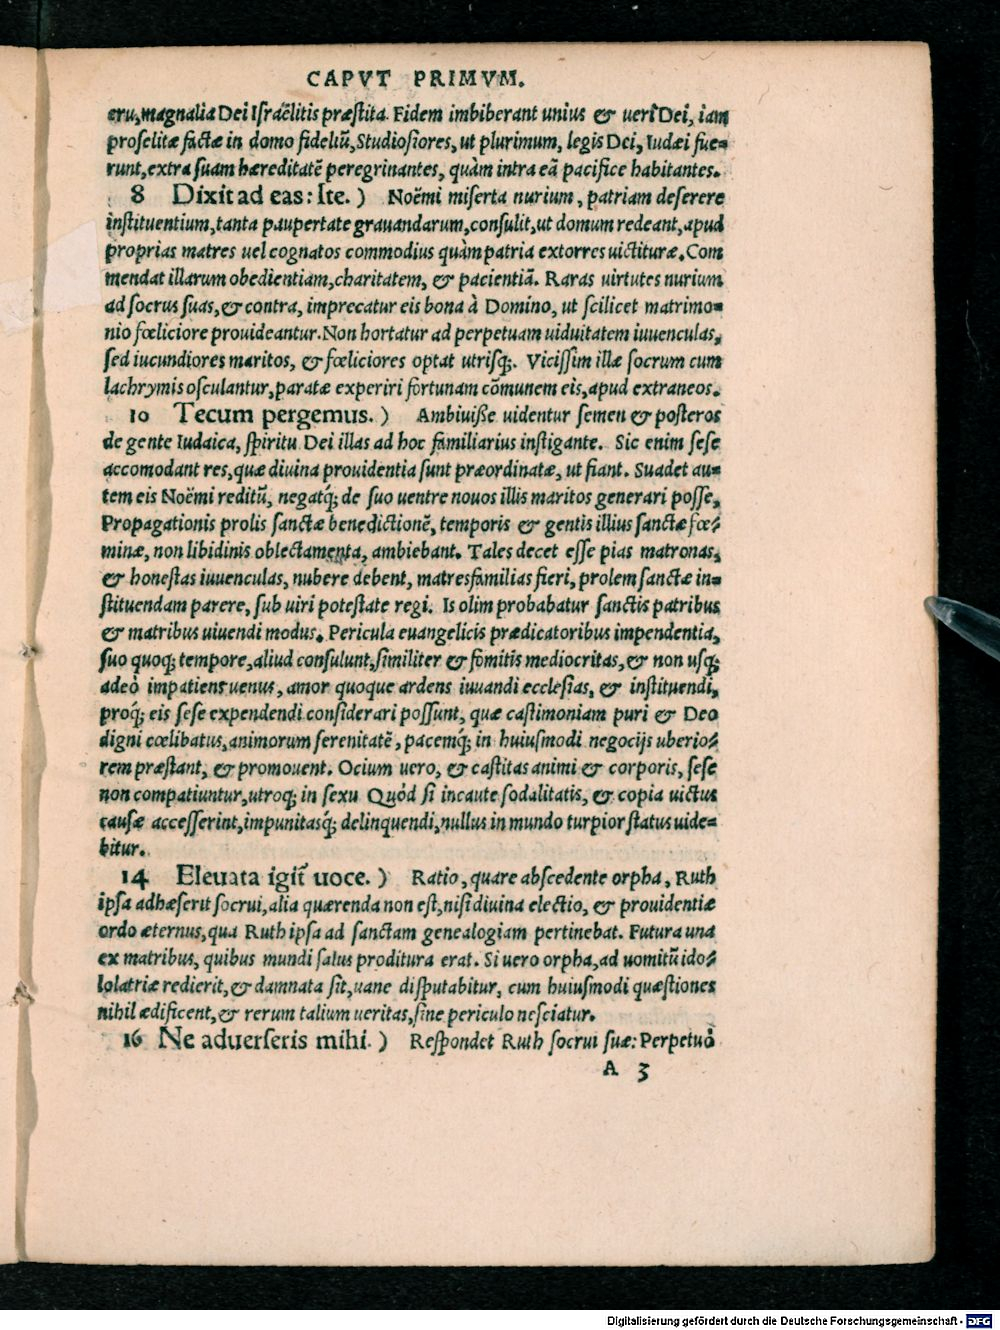 CAPVT PRIMVM.
eru, magnalia Dei Israëlitis præstita. Fidem imbiberant unius & ueri Dei, iam
proselitæ factæ in domo fideliũ, Studiosiores, ut plurimum, legis Dei, Iudæi fue=
runt, extra suam hæreditatẽ peregrinantes, quàm intra eã pacifice habitantes.
8 Dixit ad eas: Ite. ) Noëmi miserta nurium, patriam deserere
instituentium, tanta paupertate grauandarum, consulit, ut domum redeant, apud
proprias matres uel cognatos commodius quàm patria extorres uictituræ. Com
mendat illarum obedientiam, charitatem, & pacientiã. Raras uirtutes nurium
ad socrus suas, & contra, imprecatur eis bona à Domino, ut scilicet matrimo=
nio fœliciore prouideantur. Non hortatur ad perpetuam uiduitatem iuuenculas,
sed iucundiores maritos, & fœliciores optat utrisq;. Vicissim illæ socrum cum
lachrymis osculantur, paratæ experiri fortunam cõmunem eis, apud extraneos.
10 Tecum pergemus. ) Ambiuiße uidentur semen & posteros
de gente Iudaica, spiritu Dei illas ad hoc familiarius instigante. Sic enim sese
accomodant res, quæ diuina prouidentia sunt præordinatæ, ut fiant. Suadet au=
tem eis Noëmi reditũ, negatq́; de suo uentre nouos illis maritos generari posse,
Propagationis prolis sanctæ benedictionẽ, temporis & gentis illius sanctæ fœ=
minæ, non libidinis oblectamenta, ambiebant. Tales decet esse pias matronas,
& honestas iuuenculas, nubere debent, matresfamilias fieri, prolem sanctæ in=
stituendam parere, sub uiri potestate regi. Is olim probabatur sanctis patribus
& matribus uiuendi modus. Pericula euangelicis prædicatoribus impendentia,
suo quoq; tempore, aliud consulunt, similiter & fomitis mediocritas, & non usq;
adeò impatiens uenus, amor quoque ardens iuuandi ecclesias, & instituendi,
proq́; eis sese expendendi considerari possunt, quæ castimoniam puri & Deo
digni cœlibatus, animorum serenitatẽ, pacemq́; in huiusmodi negocijs uberio=
rem præstant, & promouent. Ocium uero, & castitas animi & corporis, sese
non compatiuntur, utroq; in sexu Quòd si incaute sodalitatis, & copia uictus
causæ accesserint, impunitasq́; delinquendi, nullus in mundo turpior status uide=
bitur.
14 Eleuata igit̃ uoce. ) Ratio, quare abscedente orpha, Ruth
ipsa adhæserit socrui, alia quærenda non est, nisi diuina electio, & prouidentiæ
ordo æternus, qua Ruth ipsa ad sanctam genealogiam pertinebat. Futura una
ex matribus, quibus mundi salus proditura erat. Si uero orpha, ad uomitũ ido=
lolatriæ redierit, & damnata sit, uane disputabitur, cum huiusmodi quæstiones
nihil ædificent, & rerum talium ueritas, sine periculo nesciatur.
16 Ne aduerseris mihi. ) Respondet Ruth socrui suæ: Perpetuò
A 3
Digitalisierung gefördert durch die Deutsche Forschungsgemeinschaft - DFG